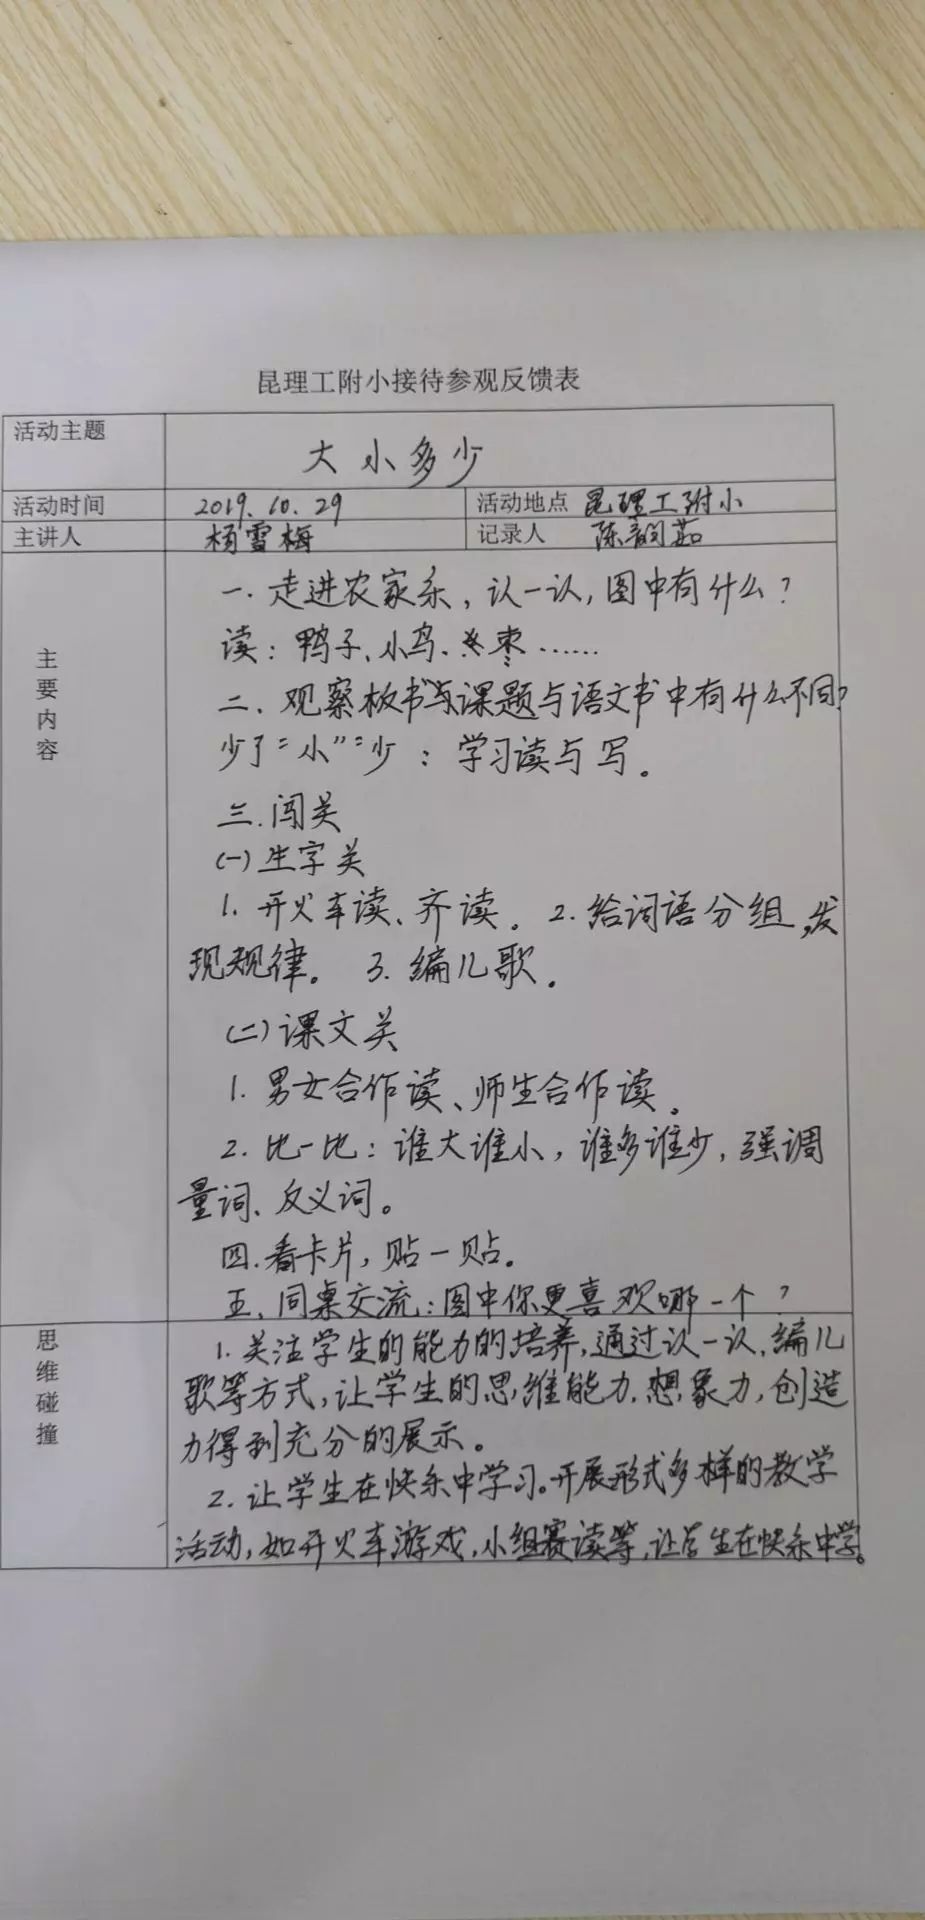 昆理工附小接待参观反馈表
活动主题 大小多少
活动时间 2019.10.29 活动地点 昆理工附小
主讲人 杨雪梅 记录人 陈韵茹
主要内容
一.走进农家乐，认一认，图中有什么？
读：鸭子、小鸟、枣……
二、观察板书与课题与语文书中有什么不同？
少了“小”“少：学习读与写。
三.闯关
(一)生字关
1.开火车读、齐读。2.给词语分组，发
现规律。 3.编儿歌。
(二)课文关
1.男女合作读、师生合作读。
2.比一比：谁大谁小，谁多谁少，强调
量词、反义词。
四.看卡片，贴一贴。
五、同桌交流：图中你更喜欢哪一个？
思维碰撞
1.关注学生的能力的培养，通过认一认，编儿
歌等方式，让学生的思维能力，想象力，创造
力得到充分的展示。
2.让学生在快乐中学习。开展形式多样的教学
活动，如开火车游戏，小组赛读等，让学生在快乐中学。